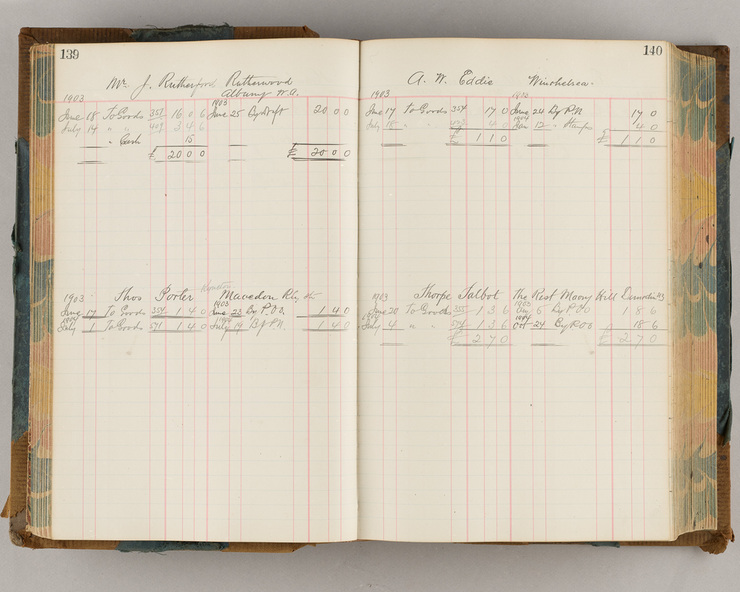 139
Mr. J. Rutherford Rutherwood
Albany W.A.
1903 1903
June 18 To Goods 353 16 0 6 June 25 By Draft 20 0 0
July 14 " " 3 4 6
" Cash 15
£ 20 0 0 £ 20 0 0
1903 Thos Porter Macedon Rly
1903
June 17 To Goods 354 1 4 0 June 23 By P.O.O. 1 4 0
1904 1904
July 1 To Goods 571 1 4 0 July 19 By P.N. 1 4 0
140
A. W. Eddie Winchelsea.
1903 1903
June 17 To Goods 354 17 0 June 24 By P.N. 17 0
1904
July 18 " " 4 0 Jan 12 " Stamps 4 0
£ 1 1 0 £ 1 1 0
1903 Thorpe Talbot The Rest Moony Hill
1903
June 20 To Goods 355 1 3 6 Aug 6 By P.O.O 1 8 6
1904 1904
July 4 " " 571 1 3 6 Oct 24 By P.O.O 18 6
£ 2 7 0 £ 2 7 0